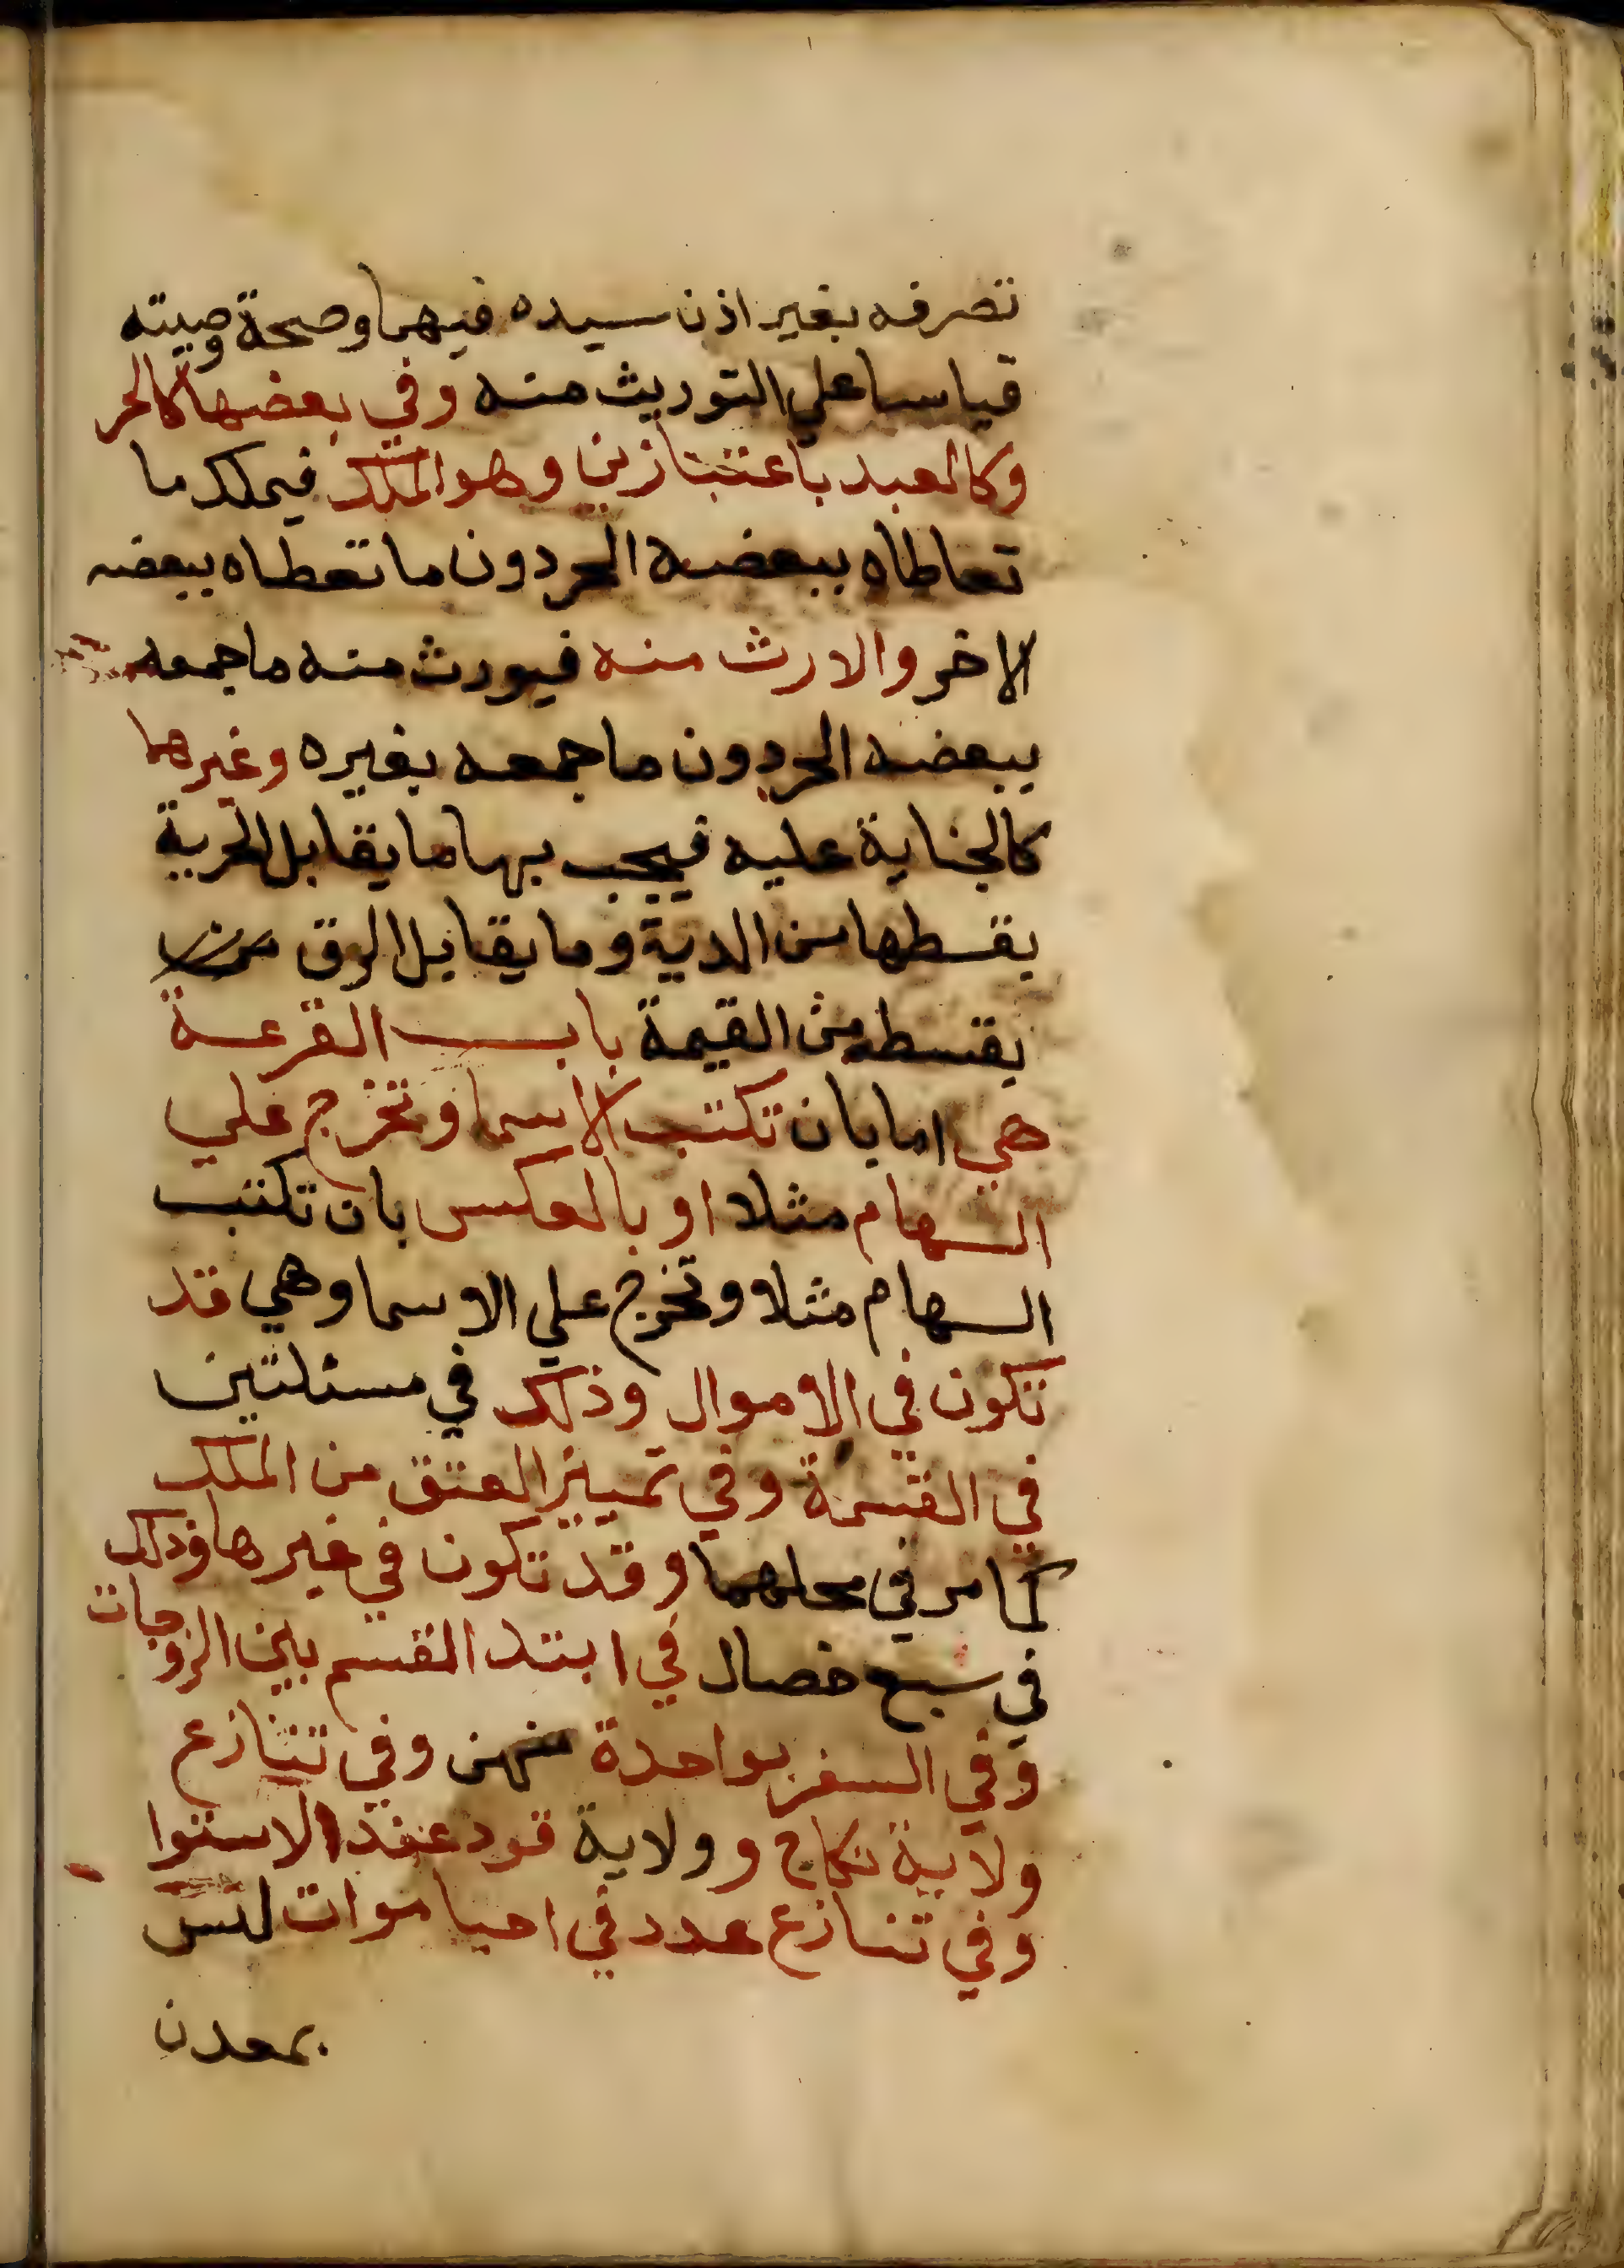 تصرفه بغير اذن سيده فيهما وصحة وصيته
قياسا علي التوريث منه وفي بعضها كالحر
وكالعبد باعتبارين وهو الملك فيملك ما
تعاطاه ببعضه الحر دون ما تعطاه ببعضه
الاخر والارث منه فيورث منه ما جمعه
ببعضه الحر دون ما جمعه بغيره وغيرها
كالجناية عليه فيجب بها ما يقابل الحرية
بقسطها من الدية وما يقابل الرق
بقسطه من القيمة باب القرعة
هي اما بان تكتب الاسما وتخرج علي
السهام مثلا او بالعكس بان تكتب
السهام مثلا وتخرج علي الاسما وهي قد
تكون في الاموال وذلك في مسئلتين
في القسمة وفي تمييز العتق من الملك
كما مر في محلهما وقد تكون في غيرها وذلك
في سبع خصال في ابتدا القسم بين الزوجات
وفي السفر بواحدة منهن وفي تنازع
ولاية نكاح و ولاية قود عند الاستوا
وفي تنازع عدد في احيا موات ليس
بمعدن